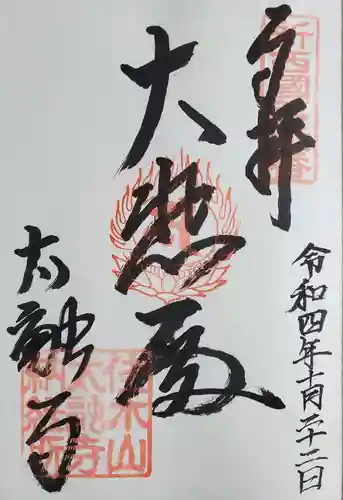 奉拝
大悲殿
太融寺
令和四年十一月二十二日
佳木山
太融寺